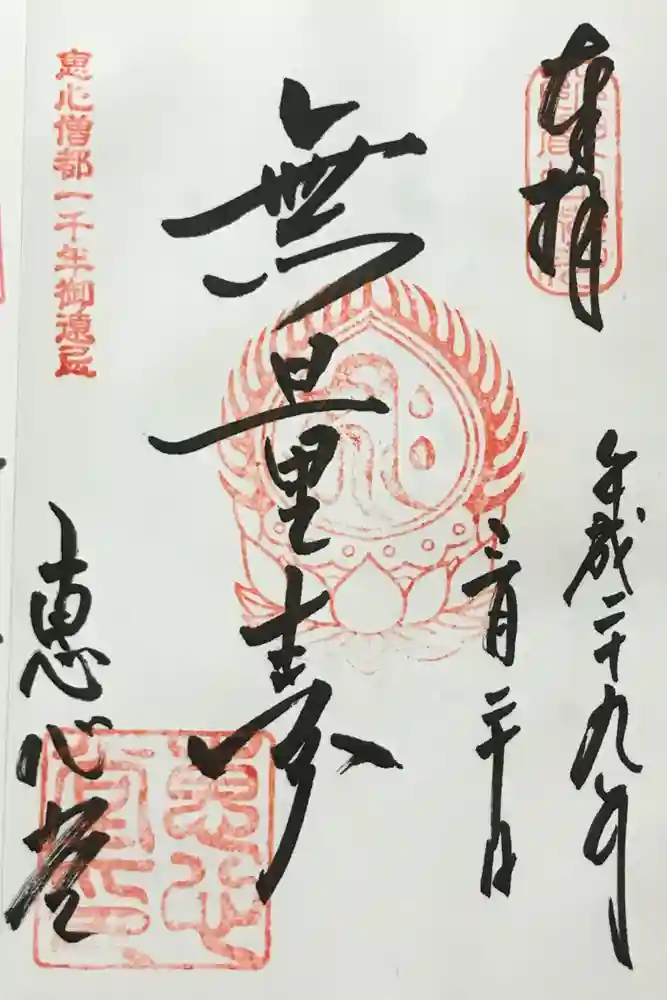 奉拝
平成二十九年
三月二十日
無量寿
恵心僧都一千年御遠忌
恵心堂
恵心堂印